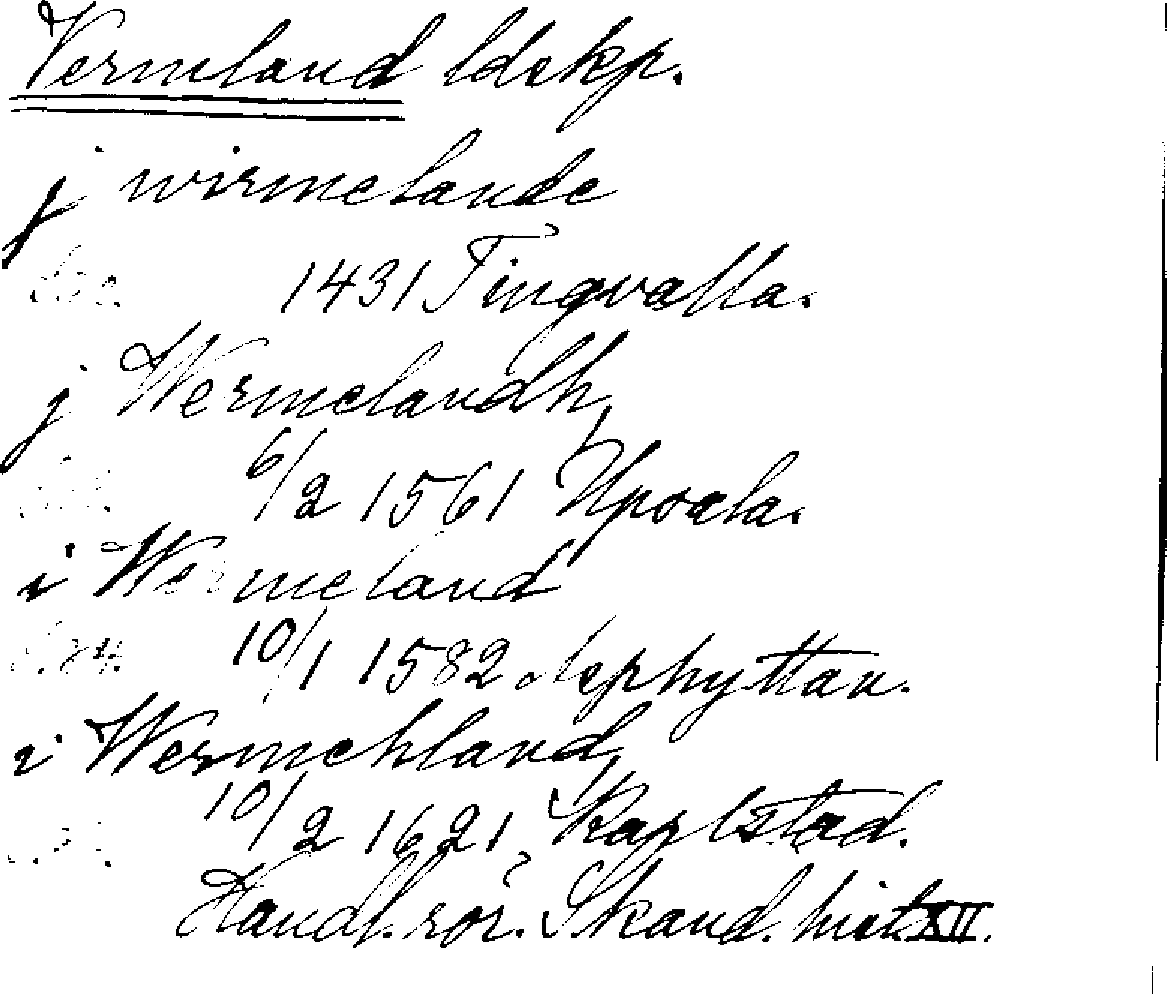 Vermeland ldskp.
j wirmelande
1431 Tingvalla.
j Wermelandh
6/2 1561 Upsala.
i Wermeland
10/1 1582 Nephyttan.
i Wermehland
10/2 1621, Karlstad.
Handl. rör. Skand. hist. XII.